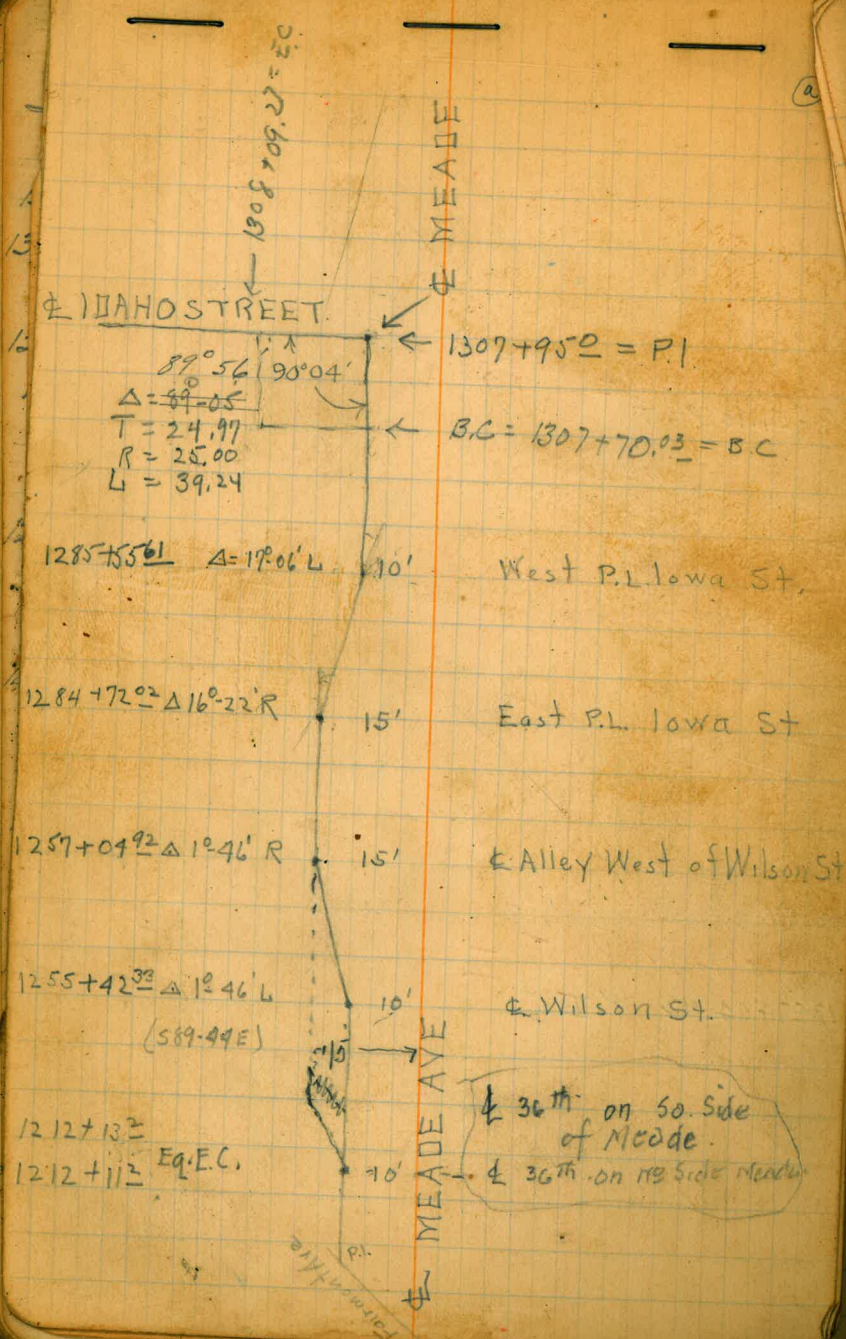 a
1308+09.27 = E.C.
℄ MEADE
℄ IDAHO STREET
1307+95.0 = P.I.
89°56
90°04'
Δ = 89-05
T = 24.97
B.C = 1307+70.03 = B C
R = 25.00
L = 39.24
1285+55 61 Δ= 17°06' L 10' West P.L. Iowa St.
1284+72 02 Δ 16°-22' R 15' East P.L. Iowa St
1257+04 92 Δ 1°-46' R 15' ℄ Alley West of Wilson St
1255+42 33 Δ 1° 46' L 10' ℄ Wilson St.
(S89-44E)
15
℄ MEADE AVE
℄ 36th on So. Side
of Meade.
1212+13 2
1212+11 2 Eq. E.C. 10' ℄ 36th on No Side Meade
P.I.
Fairmount Ave